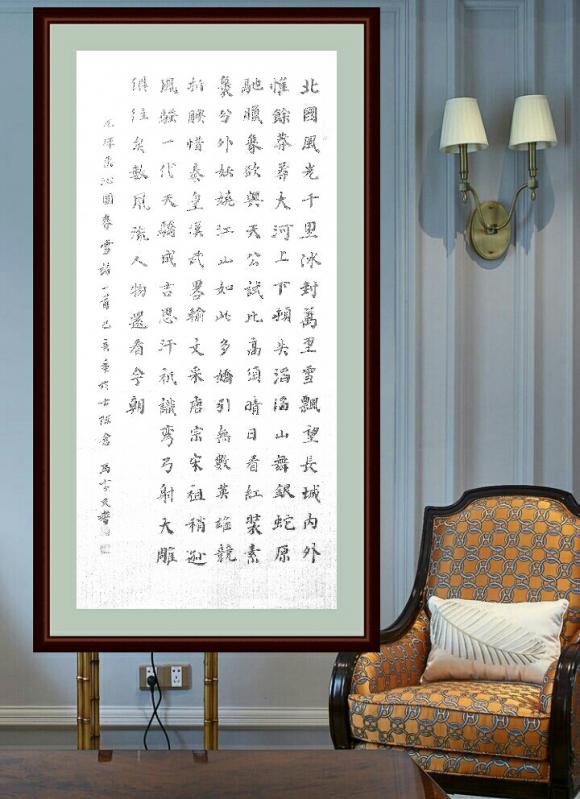 北國風光千里冰封萬里雪飄望長城內外
惟餘莽莽大河上下頓失滔滔山舞銀蛇原
馳臘象欲與天公試比高須晴日看紅裝素
裹分外妖嬈江山如此多嬌引無數英雄競
折腰惜秦皇漢武畧輸文采唐宗宋祖稍遜
風騷一代天驕成吉思汗祇識彎弓射大雕
俱往矣數風流人物還看今朝
毛澤東沁園春雪詩一首己亥於古陳倉馬書